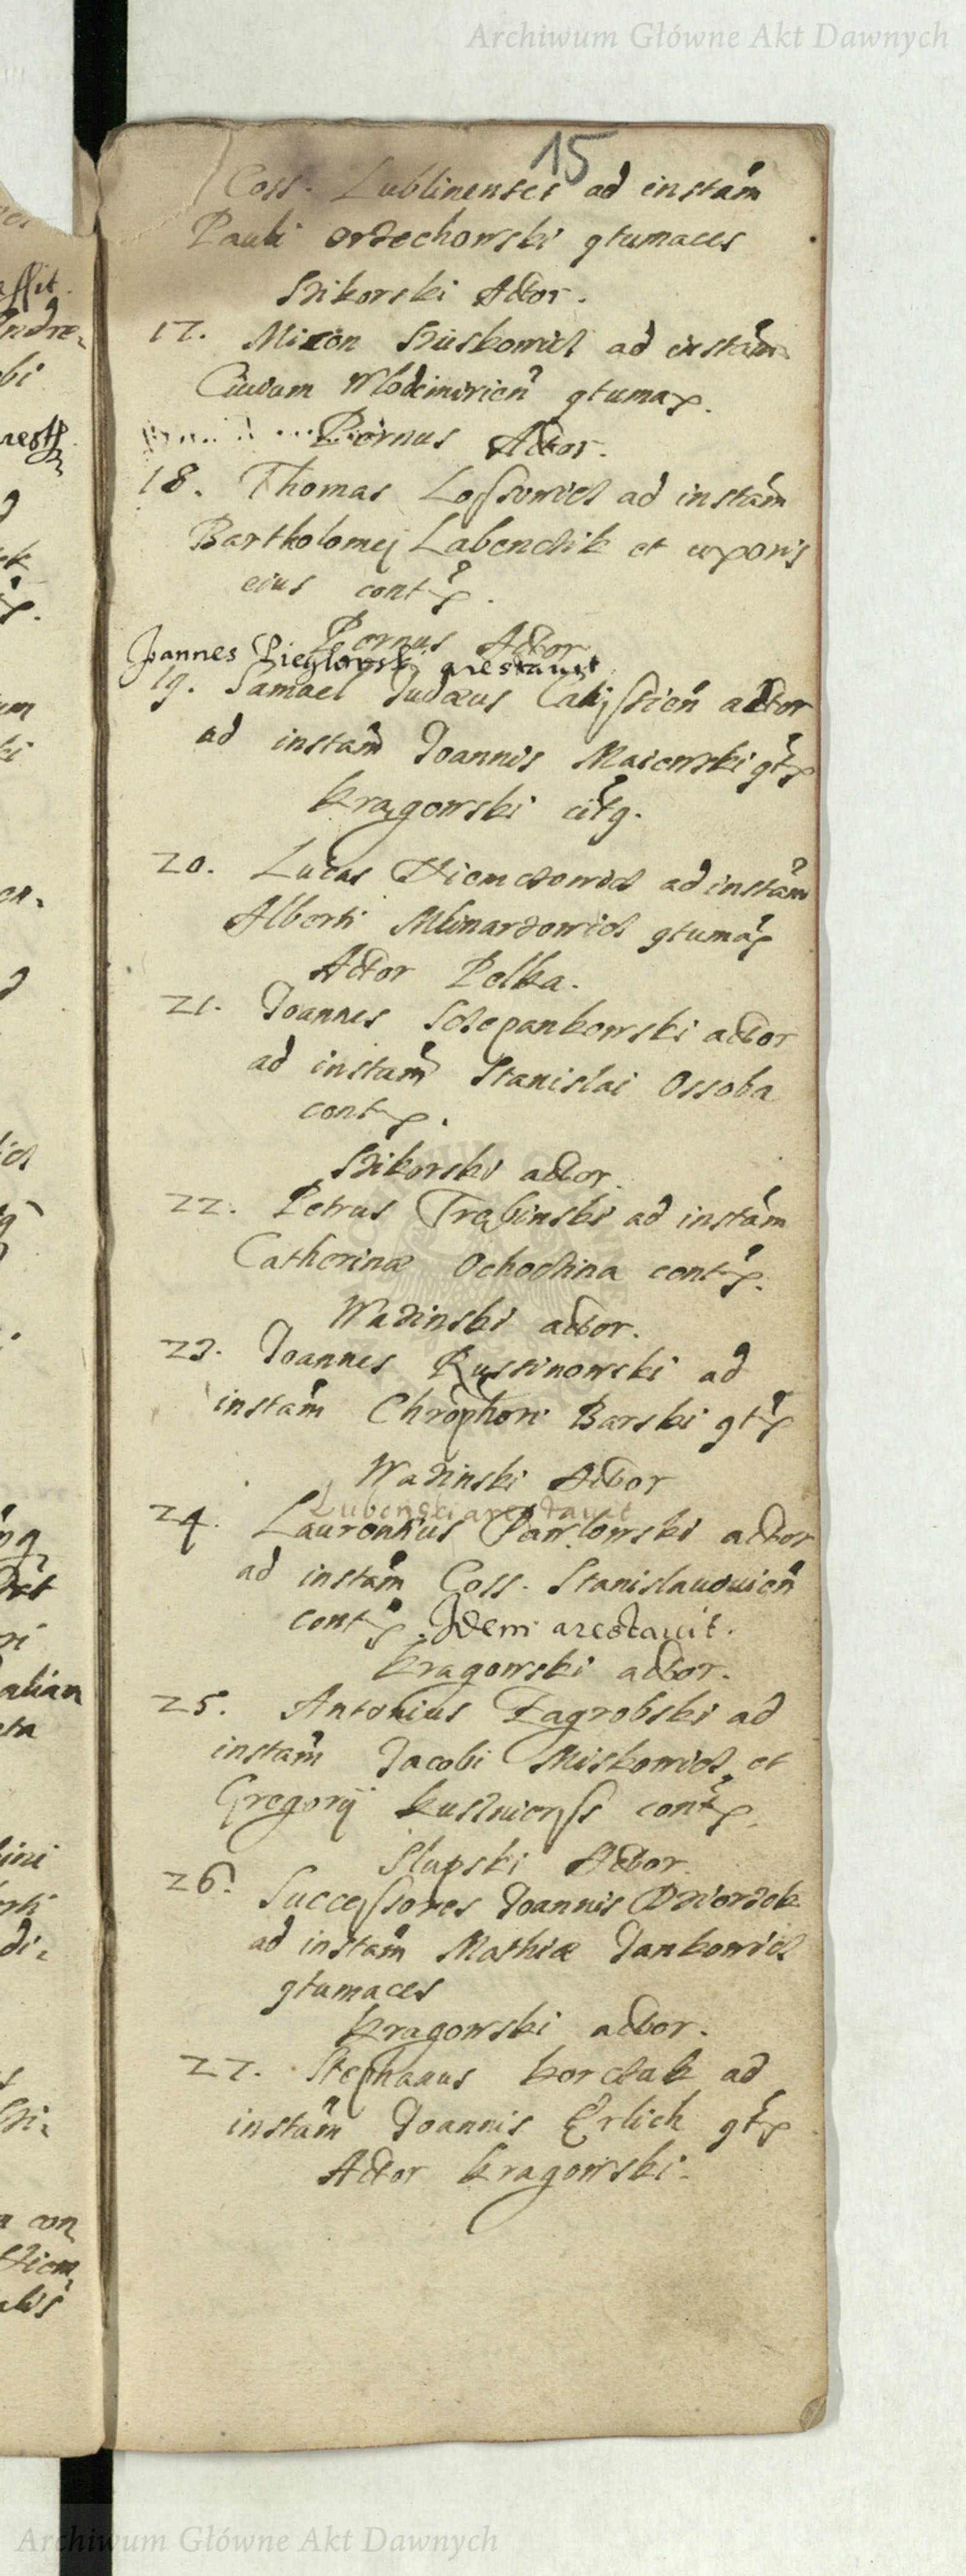 Archiwum Główne Akt Dawnych
15
Coss. Lublinenses ad instam̃
Pauli Orzechowski gtumaces
Sikorski Actor.
17. Miron Suskowicz ad instam̃
Ciuium Wlodimirien̄ gtumax.
Pornus Actor.
18. Thomas Lossowicz ad instam̃
Bartholomej Labenczik et uxoris
eius contx.
Pornus Actor.
Joannes Pieglowski arestauit
19. Samael Judæus Calissien̄ actor
ad instam̃ Joannis Maiewski gtx
Kragowski citg.
20. Lucas Niemczowicz ad instam̃
Alberti Mlinarzowicz gtumax
Actor Pelka.
21. Joannes Sczepankowski actor
ad instam̃ Stanislai Ossoba
contx.
Sikorski actor.
22. Petrus Trabinski ad instam̃
Catherinæ Ochoczina contx.
Wazinski actor.
23. Joannes Russinowski ad
instam̃ Chrophori Barski gtx
Wazinski Actor
Lubenski arestauit
24. Laurentius Pawlowski actor
ad instam̃ Coss. Stanislauouien̄
contx. Idem arestauit.
Kragowski actor.
25. Antonius Zagrobski ad
instam̃ Jacobi Miskowicz et
Gregorij contx.
Slupski Actor.
26. Successores Joannis Dziorzek
ad instam̃ Mathiæ Jankowicz
gtumaces
Kragowski actor.
27. Stephanus Korczak ad
instam̃ Joannis Erlich gtx
Actor Kragowski.
Archiwum Główne Akt Dawnych